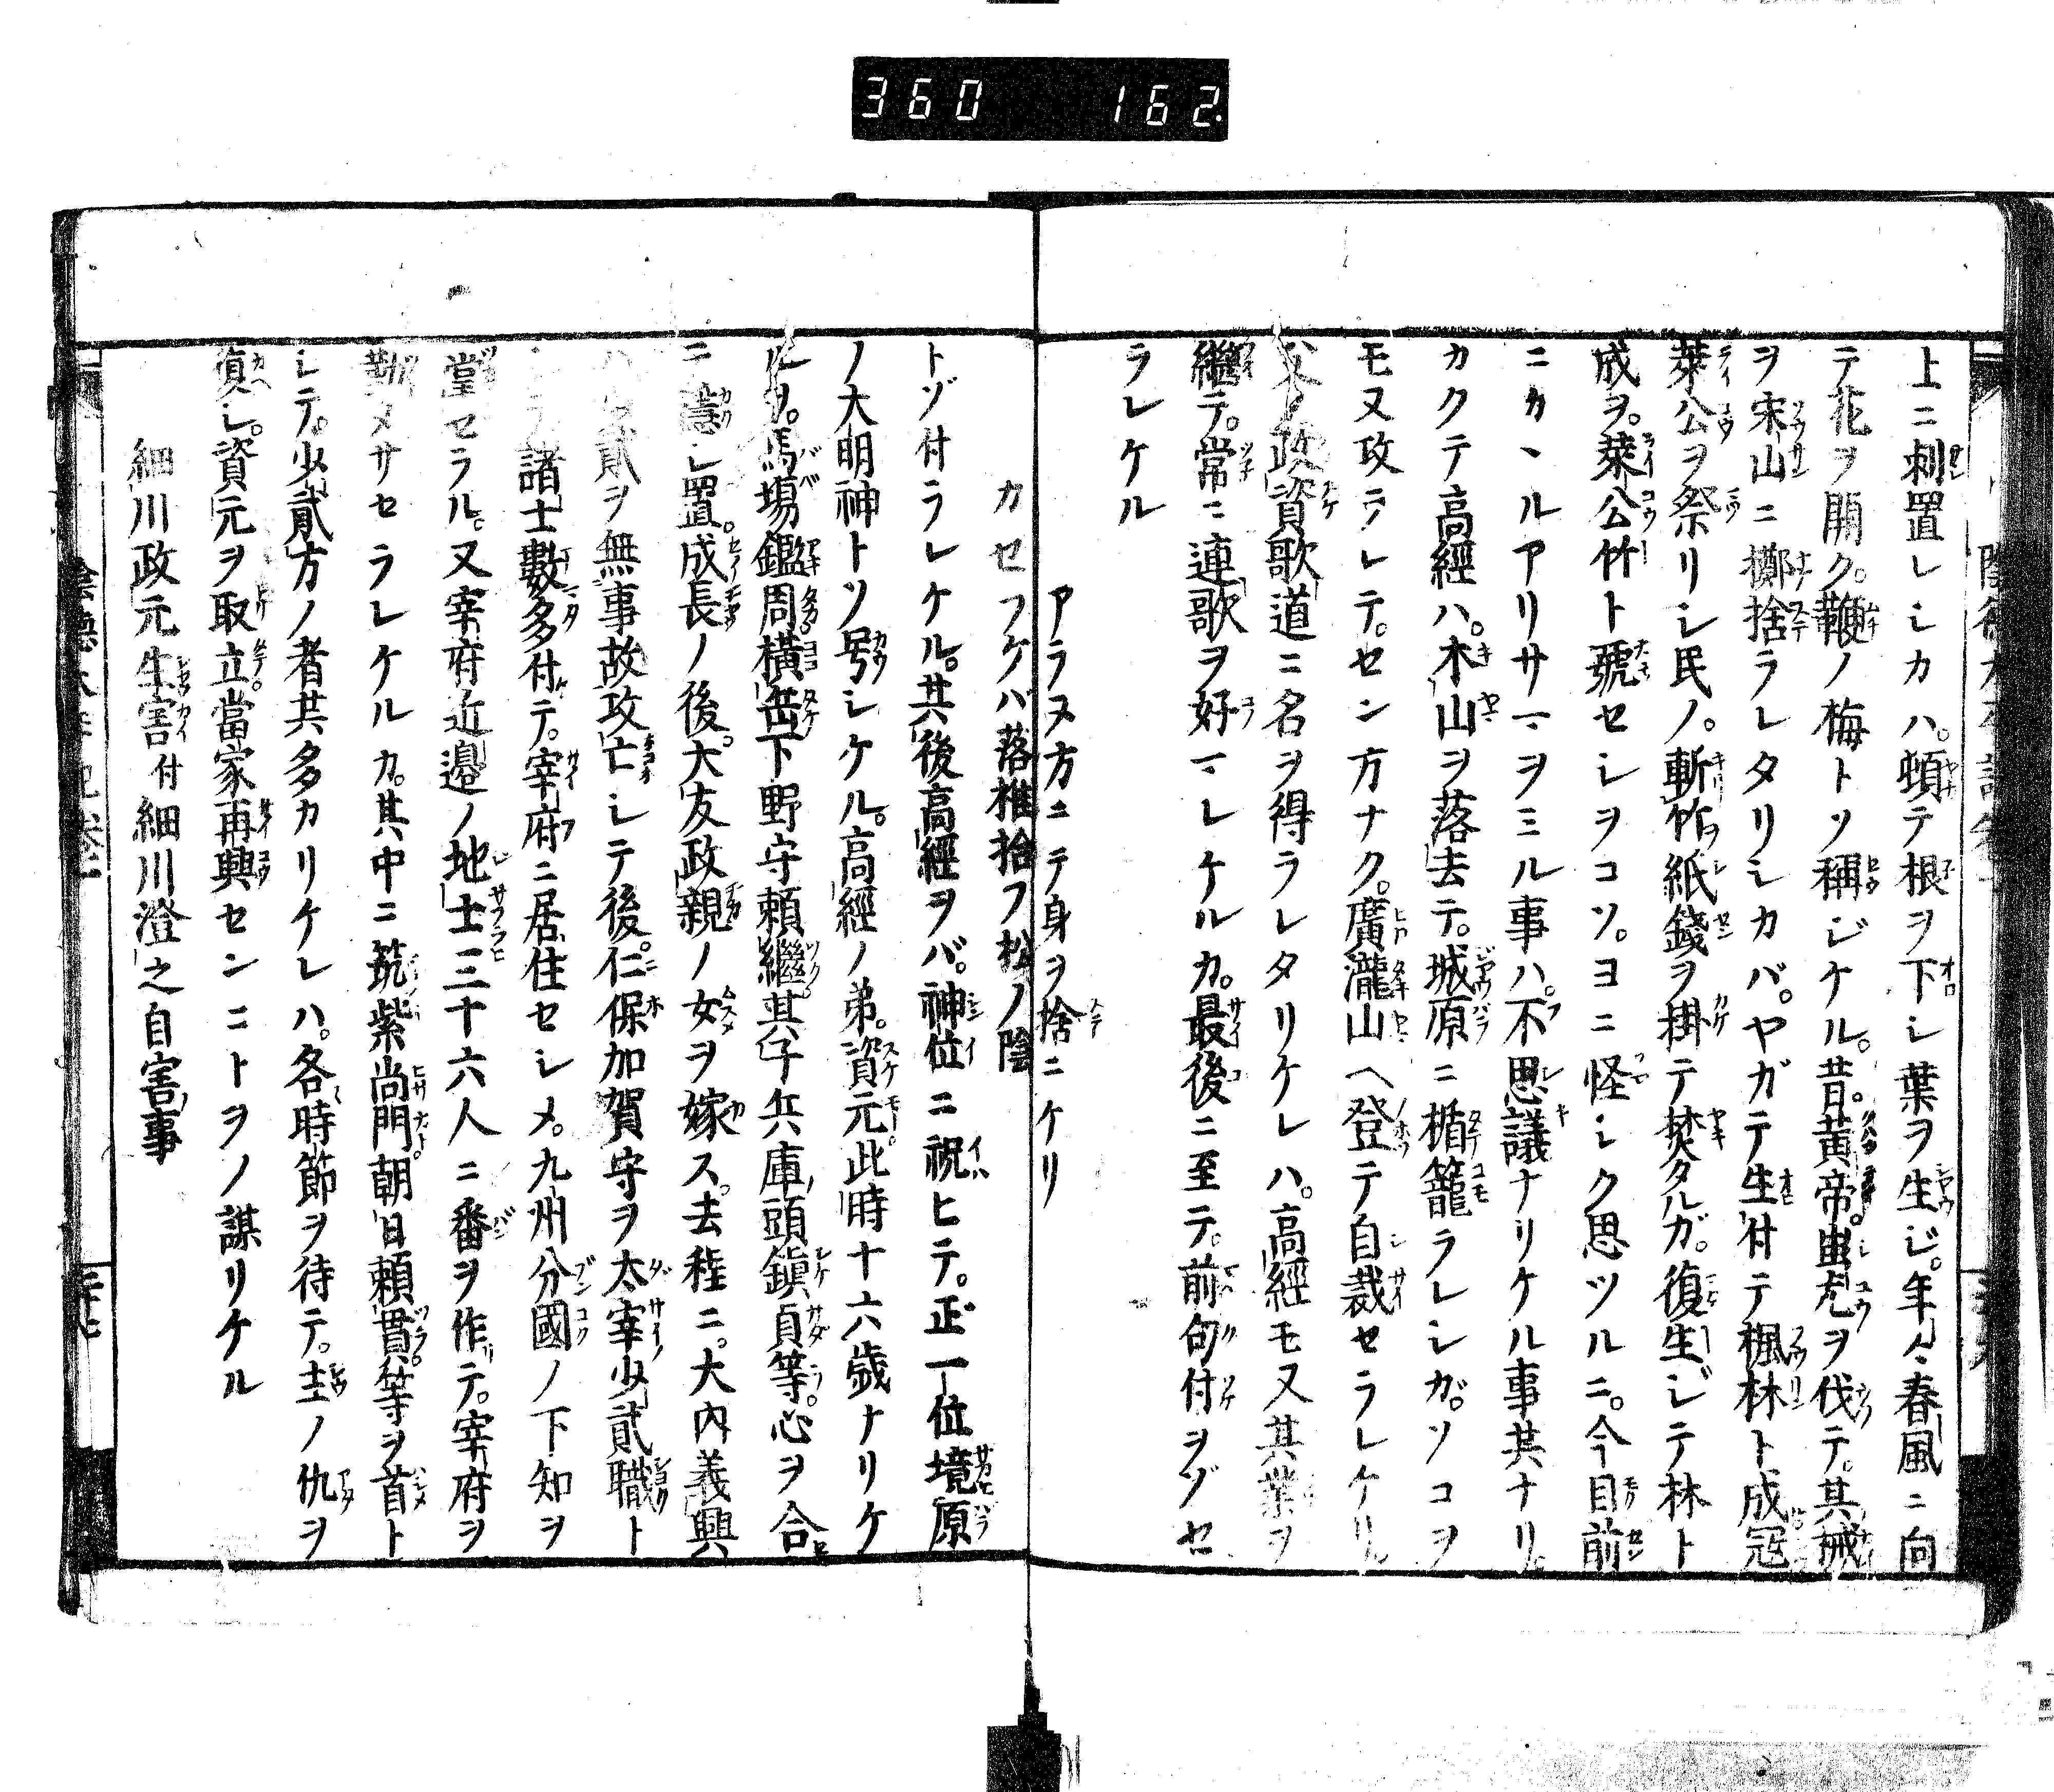 360 162
上ニ刺置レシカハ。頓テ根ヲ下シ葉ヲ生ジ。年々春風ニ向
テ花ヲ開ク。鞭ノ梅トソ稱ジケル。昔。黄帝。蚩尤ヲ伐テ。其械
ヲ宋山ニ擲捨ラレタリシカバ。ヤガテ生付テ楓林ト成冦
萊公ヲ祭リシ民ノ。斬竹紙錢ヲ掛テ焚タルガ。復生ジテ林ト
成ヲ。萊公竹ト號セシヲコソ。ヨニ怪シク思ツルニ。今目前
ニカヽルアリサマヲミル事ハ。不思議ナリケル事共ナリ。
カクテ高經ハ。木山ヲ落去テ。城原ニ楯籠ラレシガ。ソコヲ
モ又攻ラレテ。セン方ナク。廣瀧山ヘ登テ自裁セラレケリ。
父ノ政資歌道ニ名ヲ得ラレタリケレハ。高經モ又其業ヲ
繼テ。常ニ連歌ヲ好マレケルカ。最後ニ至テ。前句付ヲゾセ
ラレケル
アラヌ方ニテ身ヲ捨ニケリ
カセフケバ落椎拾フ松ノ陰
トゾ付ラレケル。其後高經ヲバ。神位ニ祝ヒテ。正一位境原
ノ大明神トソ号シケル。高經ノ弟。資元此時十六歳ナリケ
ルヲ。馬場鑑周横岳下野守頼繼。其子兵庫頭鎭貞等。心ヲ合
ニ隱レ置。成長ノ後。大友政親ノ女ヲ嫁ス。去程ニ。大内義興
貳ヲ無事故攻亡シテ後。仁保加賀守ヲ太宰少貳職ト
諸士數多付テ。宰府ニ居住セシメ。九州分國ノ下知ヲ
堂セラル。又宰府近邊ノ地士三十六人ニ番ヲ作テ。宰府ヲ
勤メサセラレケルカ。其中ニ筑紫尚門朝日頼貫等ヲ首ト
シテ。少貳方ノ者共多カリケレハ。各時節ヲ待テ。主ノ仇ヲ
資元ヲ取立當家再興センニトヲノ謀リケル
細川政元生害付細川澄之自害事